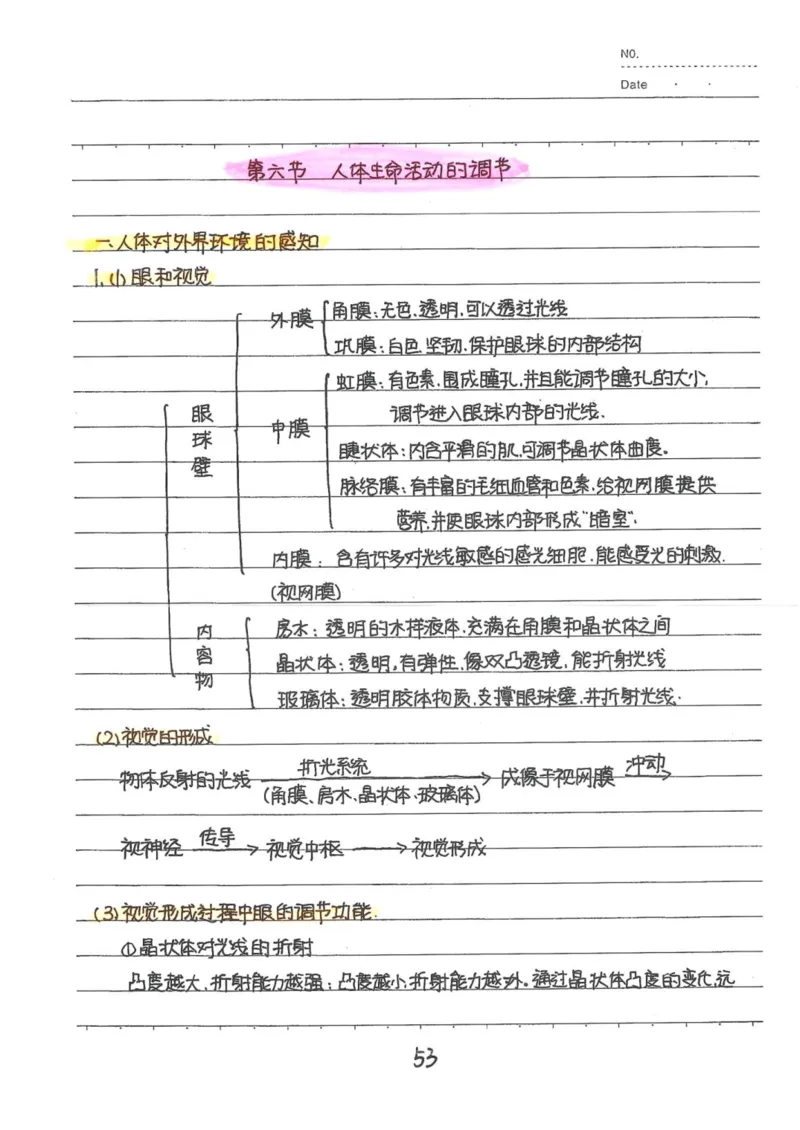 NO.
Date
第六节 人体生命活动的调节
一.人体对外界环境的感知
1.(1)眼和视觉
眼球壁
外膜
角膜:无色.透明.可以透过光线
巩膜:白色.坚韧.保护眼球的内部结构
中膜
虹膜:有色素,围成瞳孔,并且能调节瞳孔的大小,
调节进入眼球内部的光线.
睫状体:内含平滑的肌,可调节晶状体曲度。
脉络膜:有丰富的毛细血管和色素,给视网膜提供
营养,并使眼球内部形成"暗室".
内膜:含有许多对光线敏感的感光细胞.能感受光的刺激.
(视网膜)
内容物
房水:透明的水样液体.充满在角膜和晶状体之间
晶状体:透明,有弹性,像双凸透镜,能折射光线
玻璃体:透明胶体物质,支撑眼球壁,并折射光线.
(2)视觉的形成
物体反射的光线 折光系统 → 成像于视网膜 冲动 →
(角膜、房水、晶状体、玻璃体)
视神经 传导 → 视觉中枢 → 视觉形成
(3)视觉形成过程中眼的调节功能.
①晶状体对光线的折射
凸度越大,折射能力越强;凸度越小,折射能力越外。通过晶状体凸度的变化,远
53